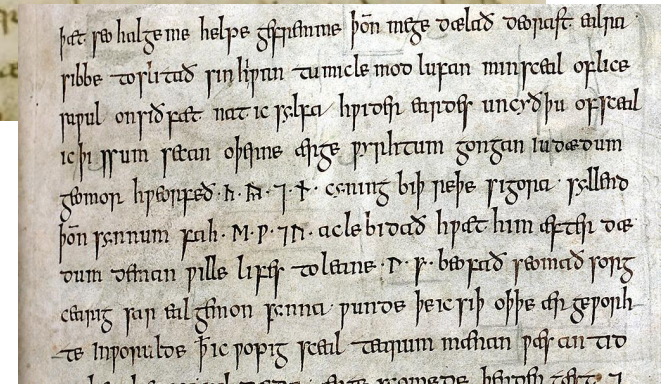 þæt seo halge me helpe gefremme þōn mege dælað deorast ealra
sibbe toslitað sin hiwan tu micle mod lufan min sceal oflice
sawul onsið fæt nat ic sylfa hwider eardes uncyðþu ofsceal
ic þissum secan oþerne ærge wyrhtum gongan iudædum
geomor hweorfeð ·ᚳ·ᚣ·⁊·ᚾ· cyning biþ reþe sigora syllend
þōn synnum fah ·ᛖ·ᚹ·⁊ᚢ· acle bidað hwæt him æfter dæ
dum deman wille lifes toleane ·ᛚ·ᚠ· beofað seomað sorg
cearig sar eal gemon synna wunde þeic siþ oþþe ær geworh
te Inworulde þ̄ ic wopig sceal tearum mænan wæs an tid